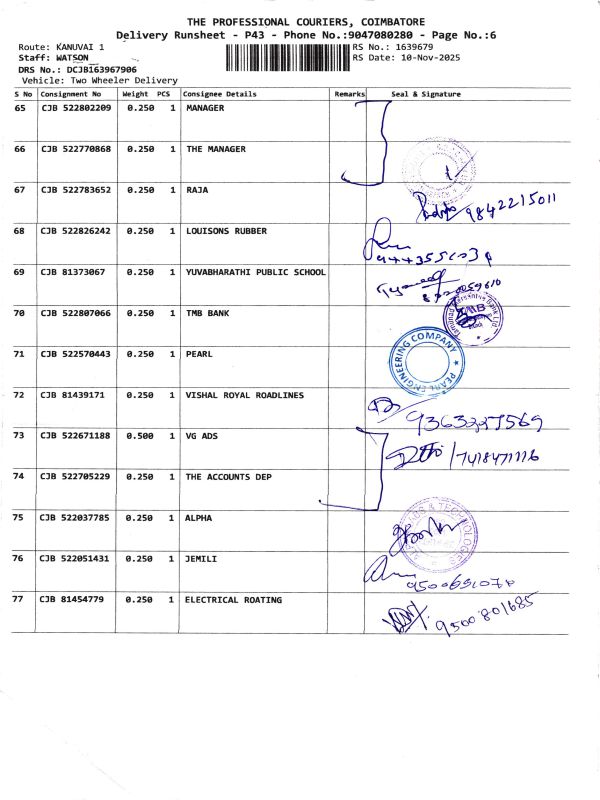 THE PROFESSIONAL COURIERS, COIMBATORE
Delivery Runsheet - P43 - Phone No.:9047080280 - Page No.:6
Route: KANUVAI 1 RS No.: 1639679
Staff: WATSON RS Date: 10-Nov-2025
DRS No.: DCJB163967906
Vehicle: Two Wheeler Delivery
S No Consignment No Weight PCS Consignee Details Remarks Seal & Signature
65 CJB 522802209 0.250 1 MANAGER
66 CJB 522770868 0.250 1 THE MANAGER
67 CJB 522783652 0.250 1 RAJA
9842215011
68 CJB 522826242 0.250 1 LOUISONS RUBBER
69 CJB 81373067 0.250 1 YUVABHARATHI PUBLIC SCHOOL
70 CJB 522807066 0.250 1 TMB BANK
TMB
71 CJB 522570443 0.250 1 PEARL
PEARL ENGINEERING COMPANY
72 CJB 81439171 0.250 1 VISHAL ROYAL ROADLINES
9363227569
73 CJB 522671188 0.500 1 VG ADS
7418471116
74 CJB 522705229 0.250 1 THE ACCOUNTS DEP
75 CJB 522037785 0.250 1 ALPHA
76 CJB 522051431 0.250 1 JEMILI
77 CJB 81454779 0.250 1 ELECTRICAL ROATING
9500801685